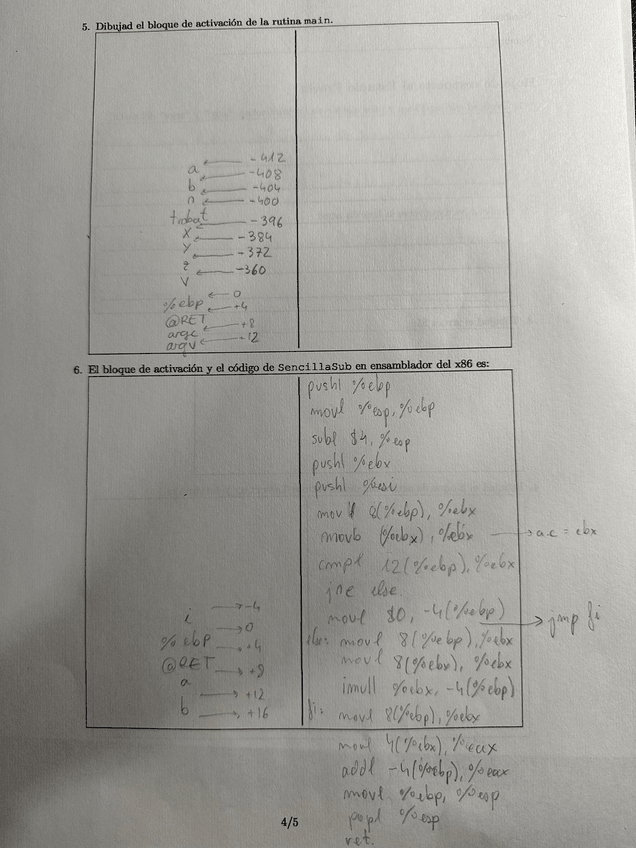 5. Dibujad el bloque de activación de la rutina main.
a ← -412
b ← -408
n ← -404
trobat ← -400
x ← -396
y ← -384
z ← -372
v ← -360
%ebp ← 0
@RET ← +4
argc ← +8
argv ← +12
6. El bloque de activación y el código de SencillaSub en ensamblador del x86 es:
i → -4
%ebp → 0
@RET → +4
a → +8
b → +12
→ +16
pushl %ebp
movl %esp, %ebp
subl $4, %esp
pushl %ebx
pushl %esi
movl 8(%ebp), %ebx
movb (%ebx), %ebx → a.c = ebx
cmpl 12(%ebp), %ebx
jne else
movl $0, -4(%ebp) → jmp fi
else: movl 8(%ebp), %ebx
movl 8(%ebx), %ebx
imull %ebx, -4(%ebp)
fi: movl 8(%ebp), %ebx
movl 4(%ebx), %eax
addl -4(%ebp), %eax
movl %ebp, %esp
popl %esp
ret.
4/5